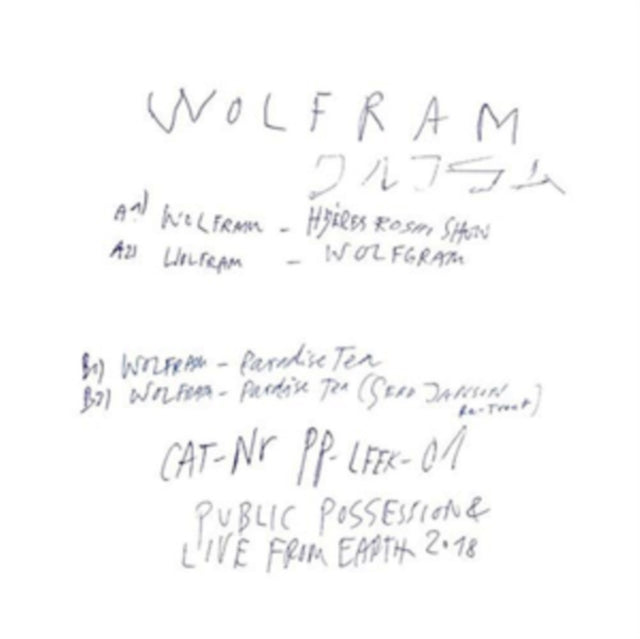 WOLFRAM
ウルフラム
A1) WOLFRAM - SHOW
A2) WOLFRAM - WOLFGRAM
B1) WOLFRAM - Paradise Tea
B2) WOLFRAM - Pardise Tea (GERD JANSON
Re-Treat)
CAT-Nr PP-LFEK-01
PUBLIC POSSESSION &
LIVE FROM EARTH 2018